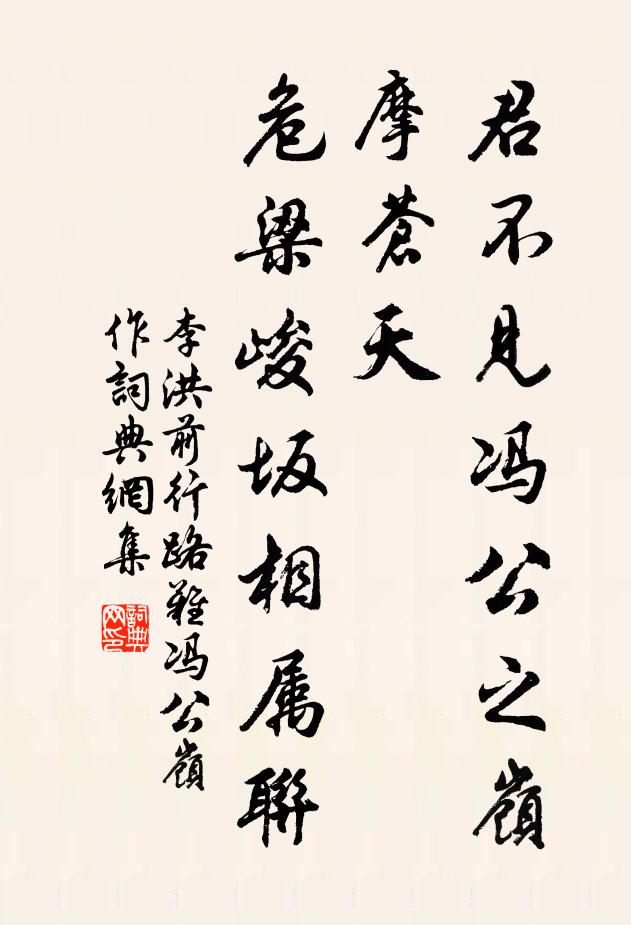 君不见冯公之嶺
摩蒼天
危梁峻坂相属聯
李洪前行路難冯公嶺
作詞典網集
詞典网印